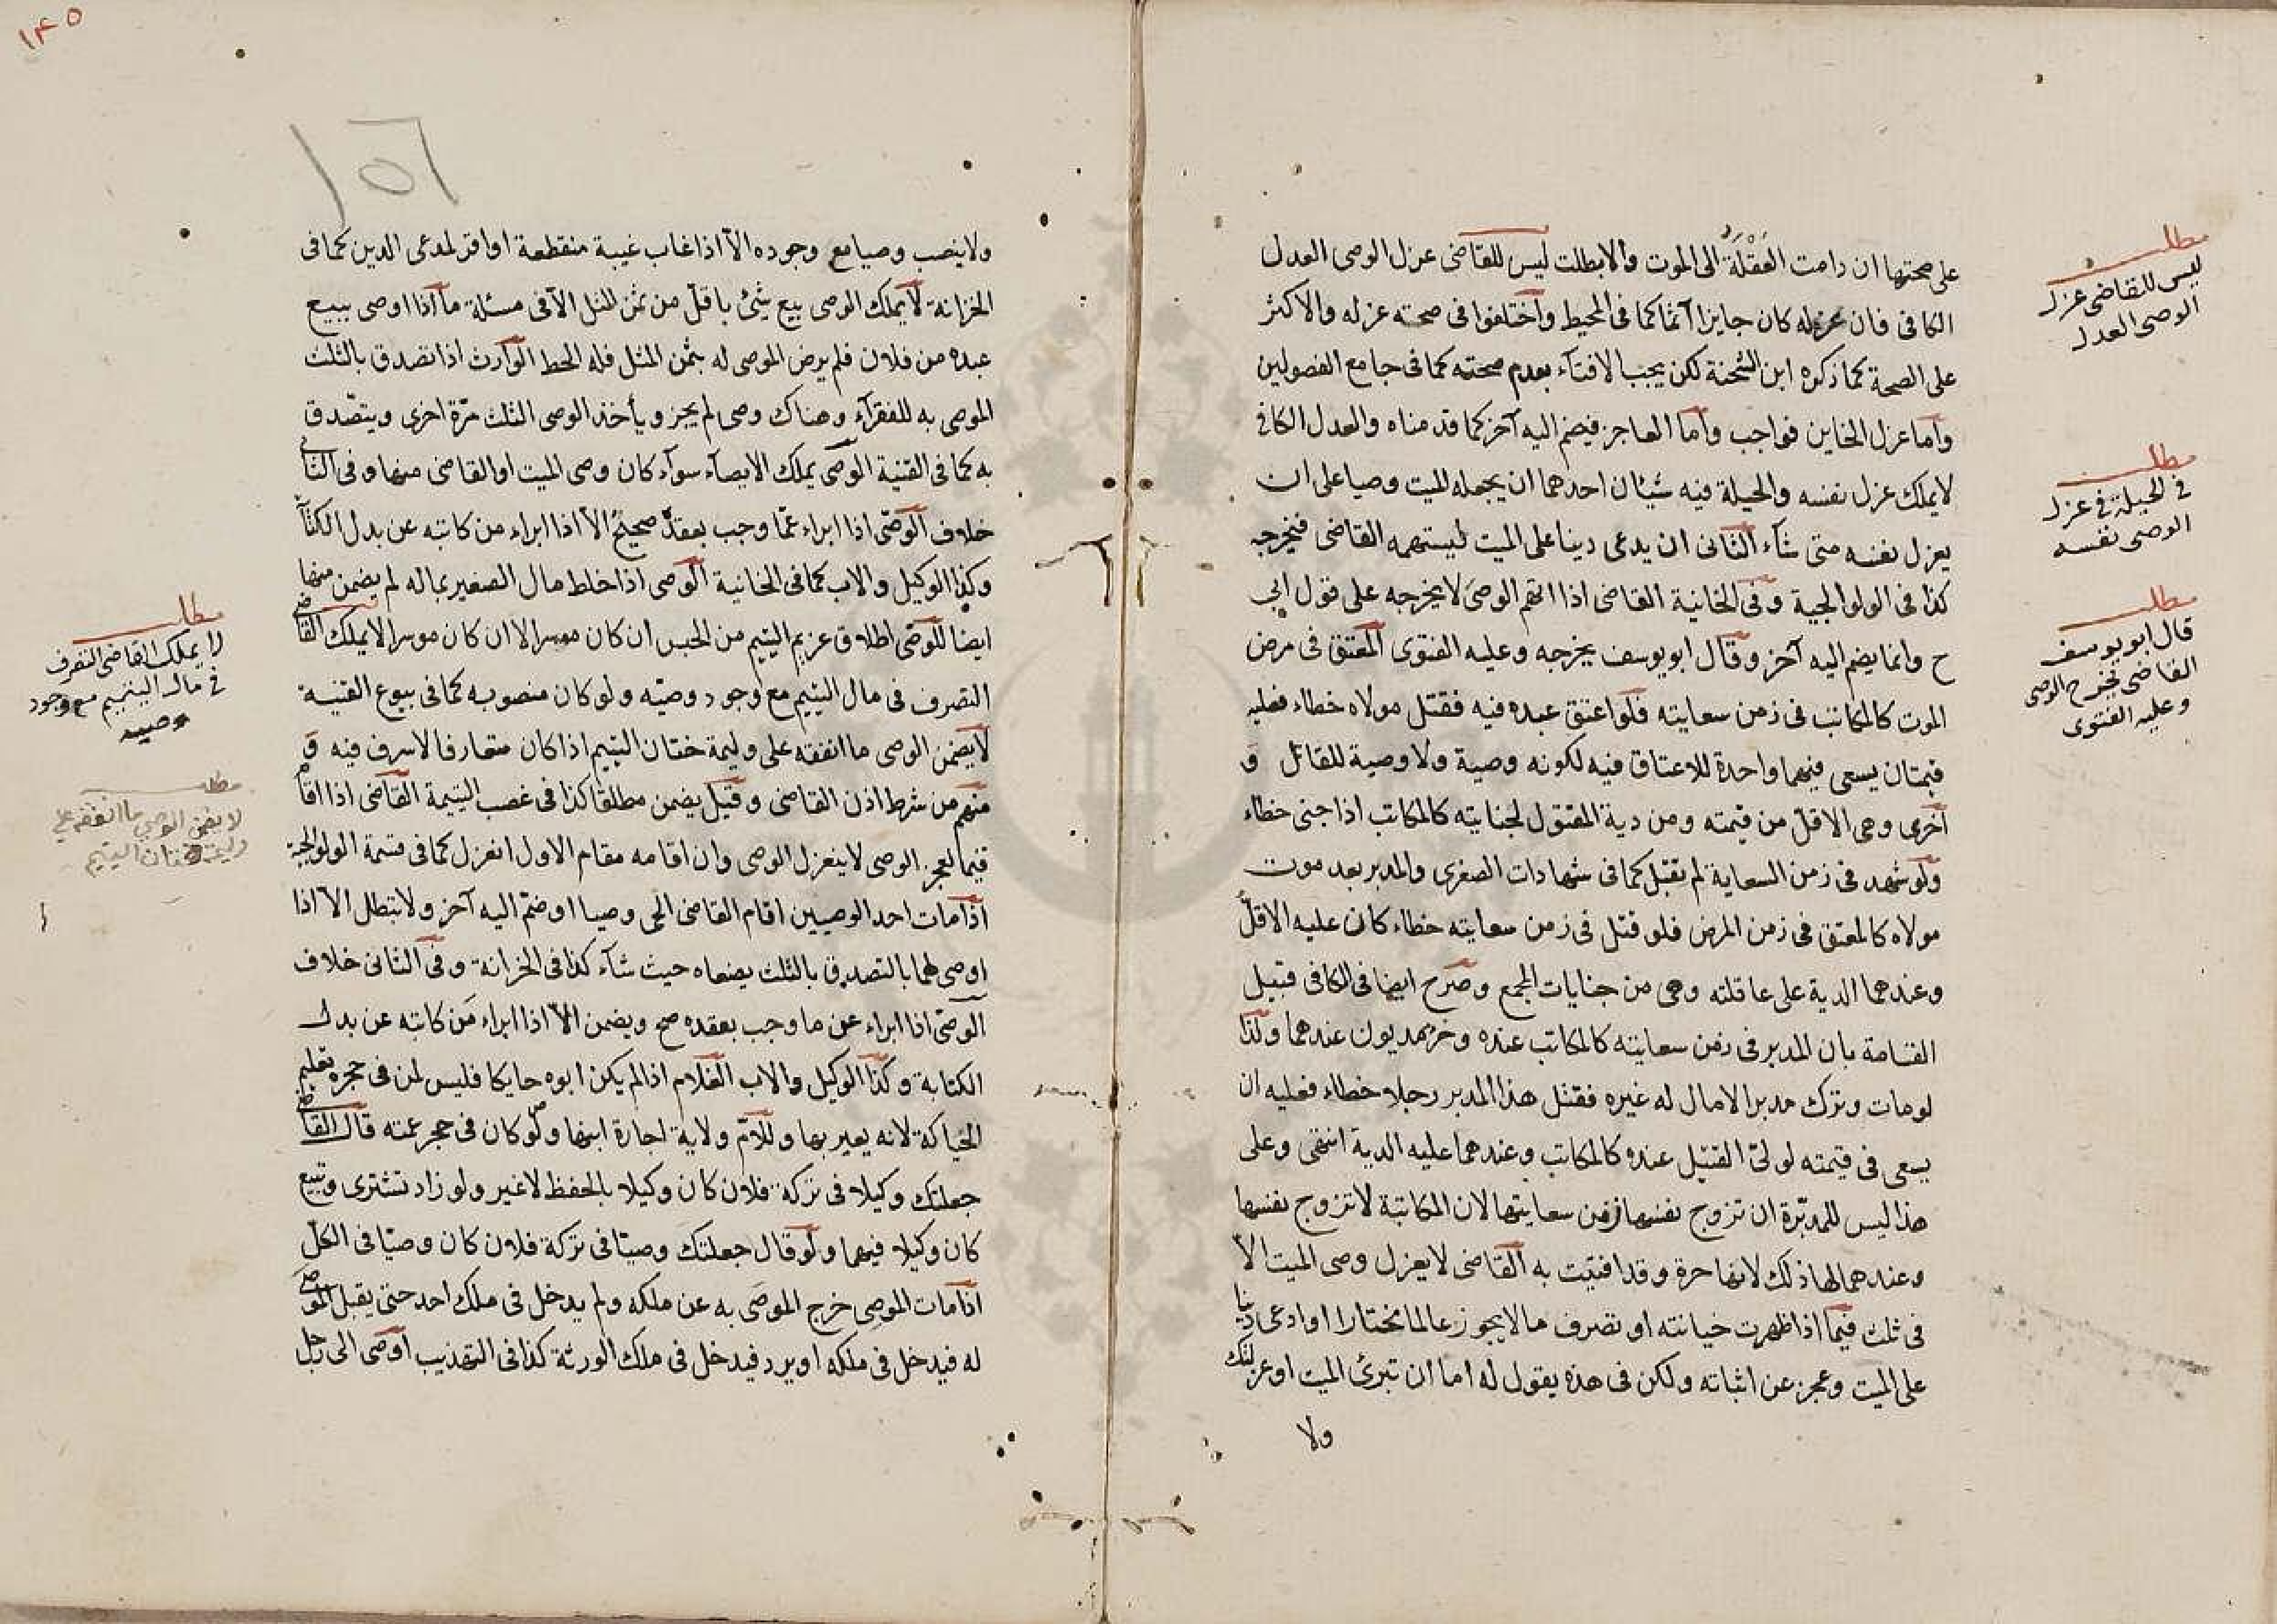 على صحتها ان دامت العُقْلَةُ الى الموت والا بطلت ليس للقاضى عزل الوصى العدل
الكافى فان عزله كان جايزا آثما كما فى المحيط واختلفوا فى صحته عزله والاكثر
على الصحة كما ذكره ابن الشحنة لكن يجب الافتاء بعدم صحته كما فى جامع الفصولين
واما عزل الخاين فواجب واما العاجز فيضم اليه آخر كما قدمناه والعدل الكافى
لا يملك عزل نفسه والحيلة فيه شيئان احدهما ان يجعله الميت وصيا على ان
يعزل نفسه متى شاء الثانى ان يدعى دينا على الميت ليتهمه القاضى فيخرجه
كذا فى الولوالجية وفى الخانية القاضى اذا اتهم الوصى لا يخرجه على قول ابى
ح وانما يضم اليه آخر وقال ابو يوسف يخرجه وعليه الفتوى المعتق فى مرض
الموت كالمكاتب فى زمن سعايته فلو اعتق عبده فيه فقتل مولاه خطاء فعليه
قيمتان يسعى فيهما واحدة للاعتاق فيه لكونه وصية ولا وصية للقاتل و
اخرى وهى الاقل من قيمته ومن دية المقتول لجنايته كالمكاتب اذا جنى خطاء
ولو شهد فى زمن السعاية لم تقبل كما فى شهادات الصغرى والمدبر بعد موت
مولاه كالمعتق فى زمن المرض فلو قتل فى زمن سعايته خطاء كان عليه الاقل
وعندهما الدية على عاقلته وهى من جنايات المجمع وصرح ايضا فى الكافى قبيل
القسامة بان المدبر فى زمن سعايته كالمكاتب عنده وحر مديون عندهما وكذا
لو مات وترك مدبرا لا مال له غيره فقتل هذا المدبر رجلا خطاء فعليه ان
يسعى فى قيمته لولىّ القتيل عنده كالمكاتب وعندهما عليه الدية انتهى وعلى
هذا ليس للمدبّرة ان تزوج نفسها زمن سعايتها لان المكاتبة لا تزوج نفسها
وعندهما لها ذلك لانها حرة وقد افتيت به القاضى لا يعزل وصى الميت الا
فى ثلث فيما اذا ظهرت خيانته او تصرف ما لا يجوز عالما مختارا او ادعى دينا
على الميت وعجز عن اثباته ولكن فى هذه يقول له اما ان تبرئ الميت او عزلتك
ولا
مطلب
ليس للقاضى عزل
الوصى العدل
مطلب
فى الحيلة فى عزل
الوصى نفسه
مطلب
قال ابو يوسف
القاضى يخرج الوصى
وعليه الفتوى
١٤٥
١٥٦
ولا ينصب وصيا مع وجوده الا اذا غاب غيبة منقطعة او اقر لمدعى الدين كما فى
الخزانة لا يملك الوصى بيع شئ باقل من ثمن المثل الا فى مسئلة ما اذا اوصى ببيع
عبده من فلان فلم يرض الموصى له بثمن المثل فله الحط الوارث اذا تصدق بالثلث
الموصى به للفقرآء وهناك وصى لم يجز ويأخذ الوصى الثلث مرّة اخرى ويتصّدق
به كما فى القنية الوصى يملك الايصاء سوآء كان وصى الميت او القاضى منها وفى الثا
خلاف الوصّى اذا ابراء عمّا وجب بعقدهِ صحيحٌ الا اذا ابراء من كاتبه عن بدل الكتا
وكذا الوكيل والاب كما فى الخانية الوصى اذا خلط مال الصغير بماله لم يضمن منها
ايضا للوصّى اطلاق غريم اليتيم من الحبس ان كان معسرا لا ان كان موسرا لا يملك القاضى
التصرف فى مال اليتيم مع وجود وصيّه ولو كان منصوبه كما فى بيوع القنية
لا يضمن الوصى ما انفقه على وليمة ختان اليتيم اذا كان متعارفا لا سرف فيه و
منهم من شرط اذن القاضى وقيل يضمن مطلقا كذا فى غصب اليتيمة القاضى اذا اقام
قيما لعجز الوصى لا ينعزل الوصى وان اقامه مقام الاول انعزل كما فى قسمة الولوالجية
اذا مات احد الوصيين اقام القاضى الحى وصيا او ضمّ اليه آخر ولا تبطل الا اذا
اوصى لهما بالتصدق بالثلث يضعاه حيث شآء كذا فى الخزانة وفى الثانى خلاف
الوصّى اذا ابراء عن ما وجب بعقده صح ويضمن الا اذا ابراء مَن كاتبه عن بدل
الكتابة وكذا الوكيل والاب الغلام اذا لم يكن ابوه حايكا فليس لمن فى حجره تعليم
الحياكة لانه يعير بها وللامّ ولاية اجارة ابنها ولو كان فى حجر عمته قال القاضى
جعلتك وكيلا فى تركة فلان كان وكيلا بالحفظ لا غير ولو زاد تشترى وتبيع
كان وكيلا فيهما ولو قال جعلتك وصيّا فى تركة فلان كان وصيّا فى الكلّ
اذا مات الموصِى خرج الموصَى به عن ملكه ولم يدخل فى ملك احد حتى يقبل الموصَى
له فيدخل فى ملكه او يرد فيدخل فى ملك الورثة كذا فى التهذيب اوصى الى رجل
مطلب
لا يملك القاضى التصرف
فى مال اليتيم مع وجود
وصيه
مطلب
لا يضمن الوصى ما انفقه على
وليمة ختان اليتيم